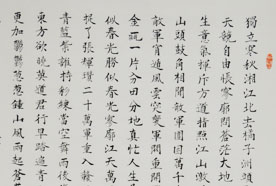 獨立寒秋湘江北去橘子洲頭
天競自由悵寥廓問蒼茫大地
生意氣揮斥方遒指點江山激
山頭鼓角相聞敵軍圍困萬千
敵軍宵遁風雲突變軍閥重開
金甌一片分田分地真忙人生
似春光勝似春光寥廓江天萬
捉了張輝瓚二十萬軍重入贛
青藍紫誰持彩練當空舞雨後
東方欲曉莫道君行早踏遍青
更加鬱鬱蔥蔥鍾山風雨起蒼